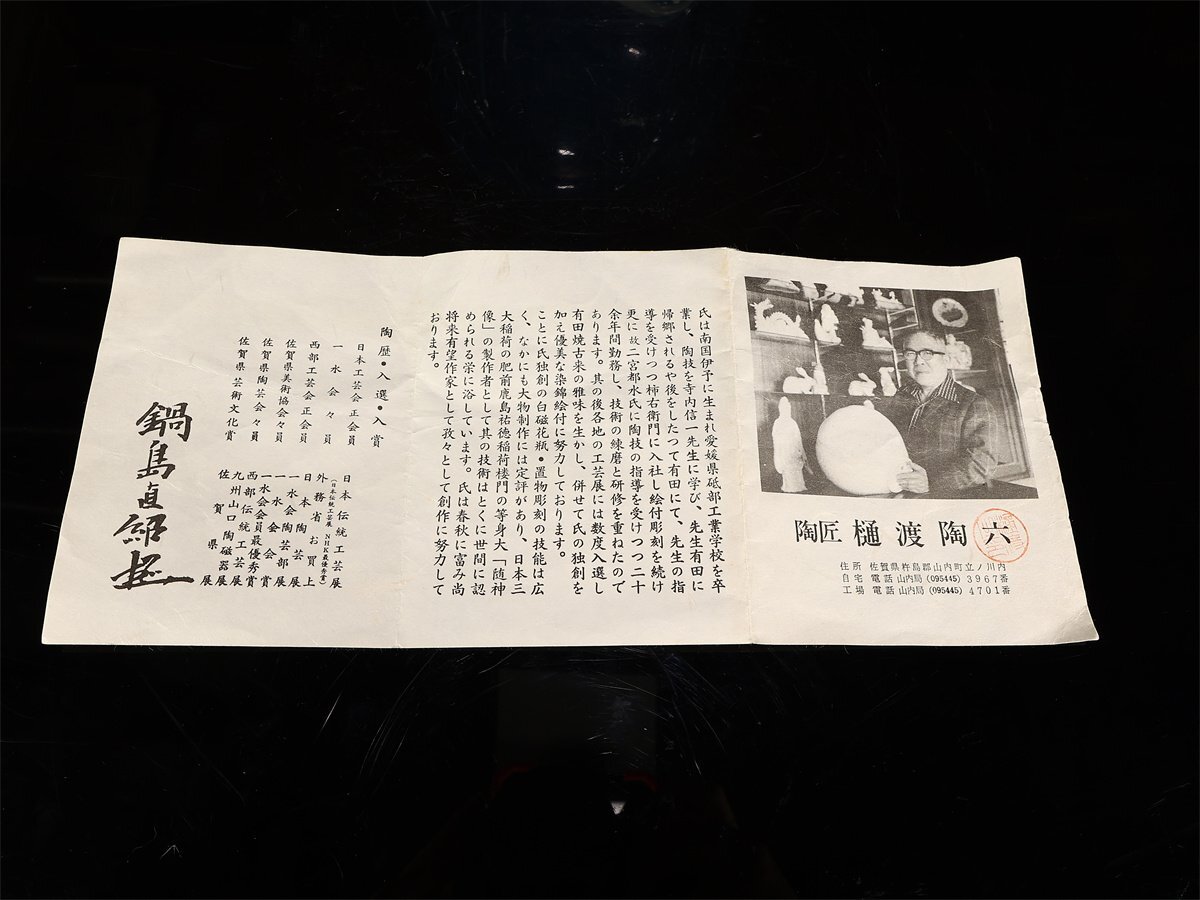 陶匠 樋渡陶六
住所 佐賀県杵島郡山内町立ノ川内
自宅 電話 山内局 (095445) 3967番
工場 電話 山内局 (095445) 4701番
氏は南国伊予に生まれ愛媛県砥部工業学校を卒
業し、陶技を寺内信一先生に学び、先生有田に
帰郷されるや後をしたつて有田にて、先生の指
導を受けつつ柿右衛門に入社し絵付彫刻を続け
更に故二宮都水氏に陶技の指導を受けつつ二十
余年間勤務し、技術の練磨と研修を重ねたので
あります。其の後各地の工芸展には数度入選し
有田焼古来の雅味を生かし、併せて氏の独創を
加え優美な染錦絵付に努力しております。
ことに氏独創の白磁花瓶・置物彫刻の技能は広
く、なかにも大物制作には定評があり、日本三
大稲荷の肥前鹿島祐徳稲荷楼門の等身大「随神
像」の製作者として其の技術はとくに世間に認
められる栄に浴しています。氏は春秋に富み尚
将来有望作家として孜々として創作に努力して
おります。
陶歴・入選・入賞
日本工芸会正会員
一水会々員
西部工芸会正会員
佐賀県美術協会々員
佐賀県陶芸会々員
佐賀県芸術文化賞
日本伝統工芸展
(日本伝統工芸展 NHK最優秀賞)
外務省お買上
日本陶芸展
一水会陶芸部展
一水会会賞
一水会会員最優秀賞
西部伝統工芸展
九州山口陶磁器展
佐賀県展
鍋島直紹